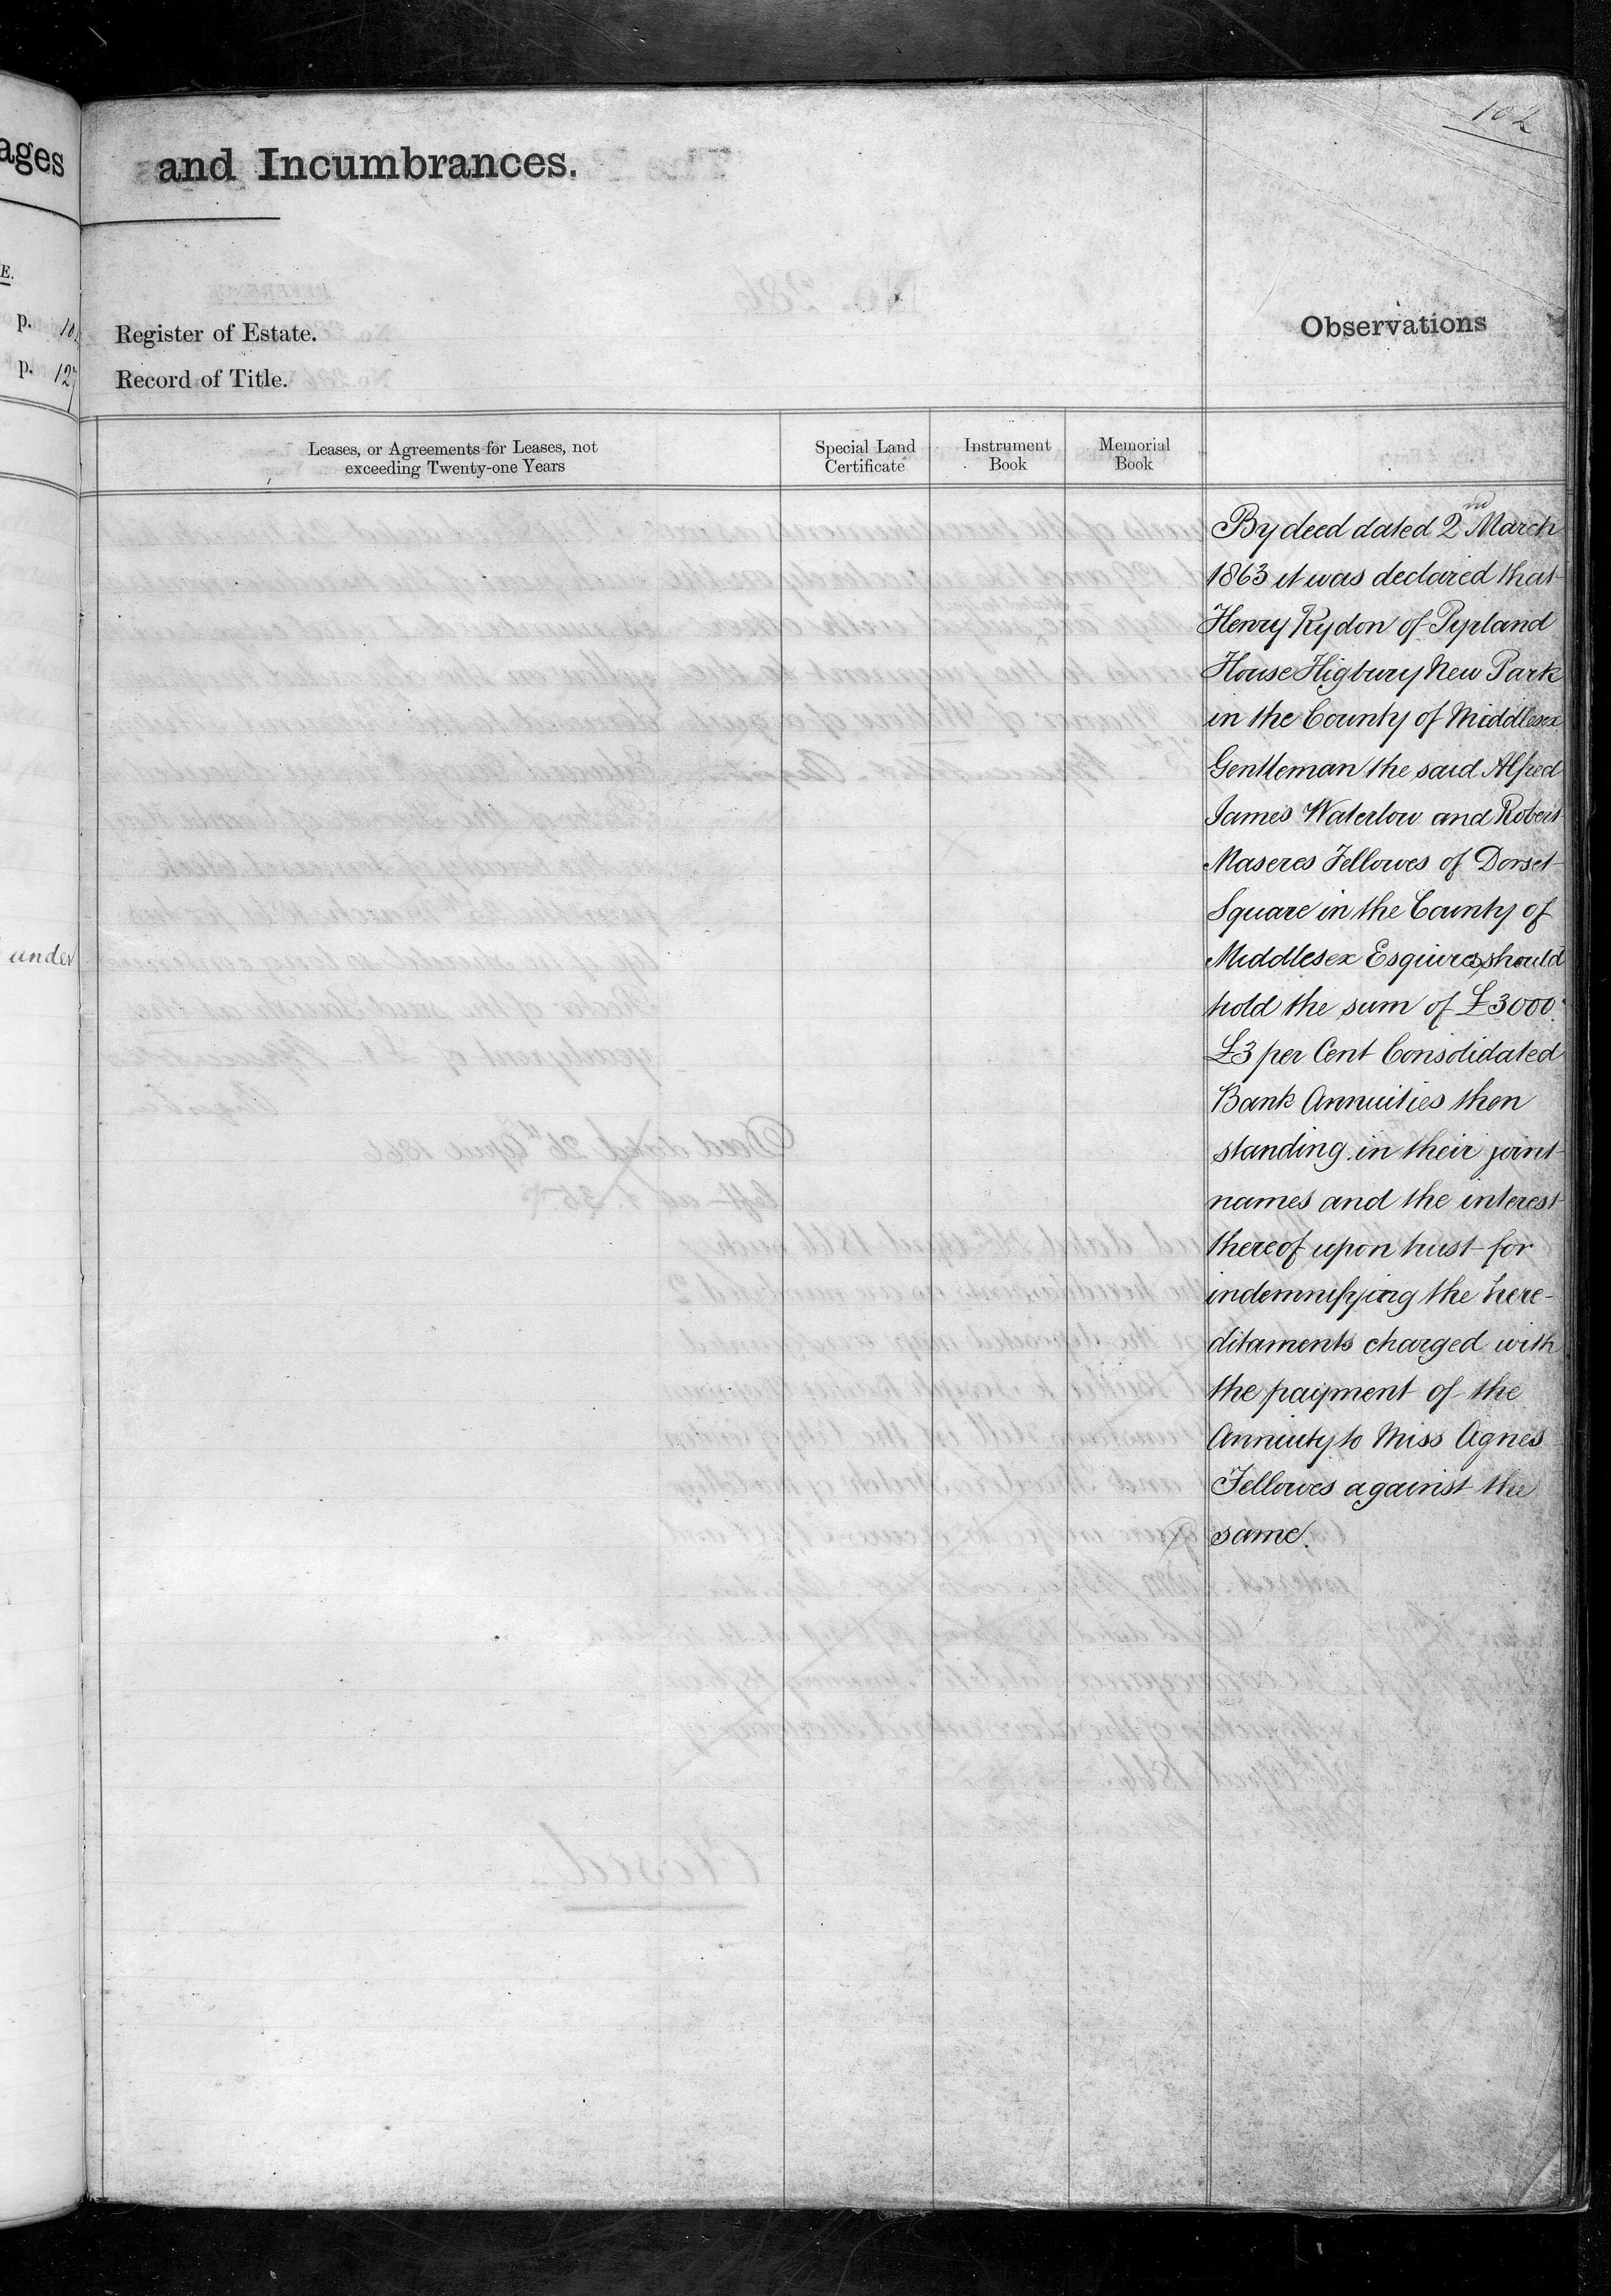 102
ages
and Incumbrances.
E.
p.
p. 127
Register of Estate.
Record of Title.
Observations
Leases, or Agreements for Leases, not
exceeding Twenty-one Years
Special Land
Certificate
Instrument
Book
Memorial
Book
under
By deed dated 2nd March
1863 it was declared that
Henry Rydon of Pyrland
House Higbury New Park
in the County of Middlesex
Gentleman the said Alfred
James Waterlow and Robert
Maseres Fellowes of Dorset
Square in the County of
Middlesex Esquires should
hold the sum of £3000
£3 per Cent Consolidated
Bank Annuities then
standing in their joint
names and the interest
thereof upon trust for
indemnifying the here-
ditaments charged with
the payment of the
Annuity to Miss Agnes
Fellowes against the
same.